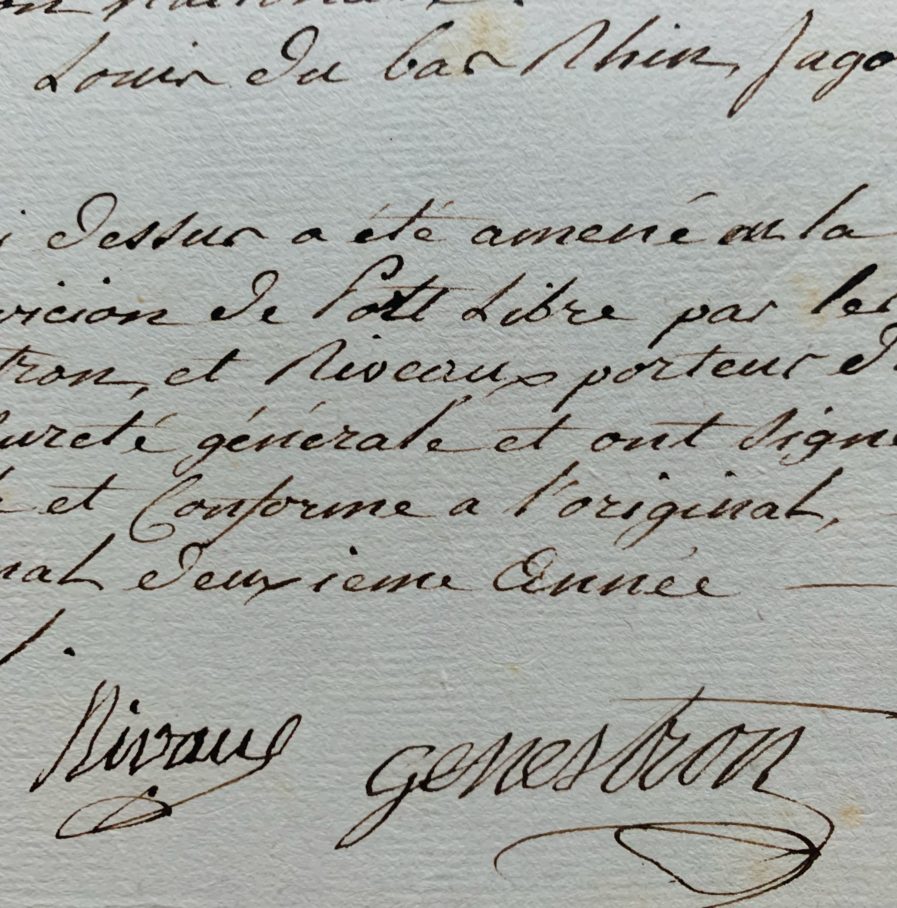 on nationale.
Louis du bas Rhin, Jago
i dessus a été amené en la
vicion de Port Libre par les
tron, et Riveaux porteur d
sureté générale et ont signé
et Conforme a l'original,
nal deuxieme Année
Rivaud
genestron